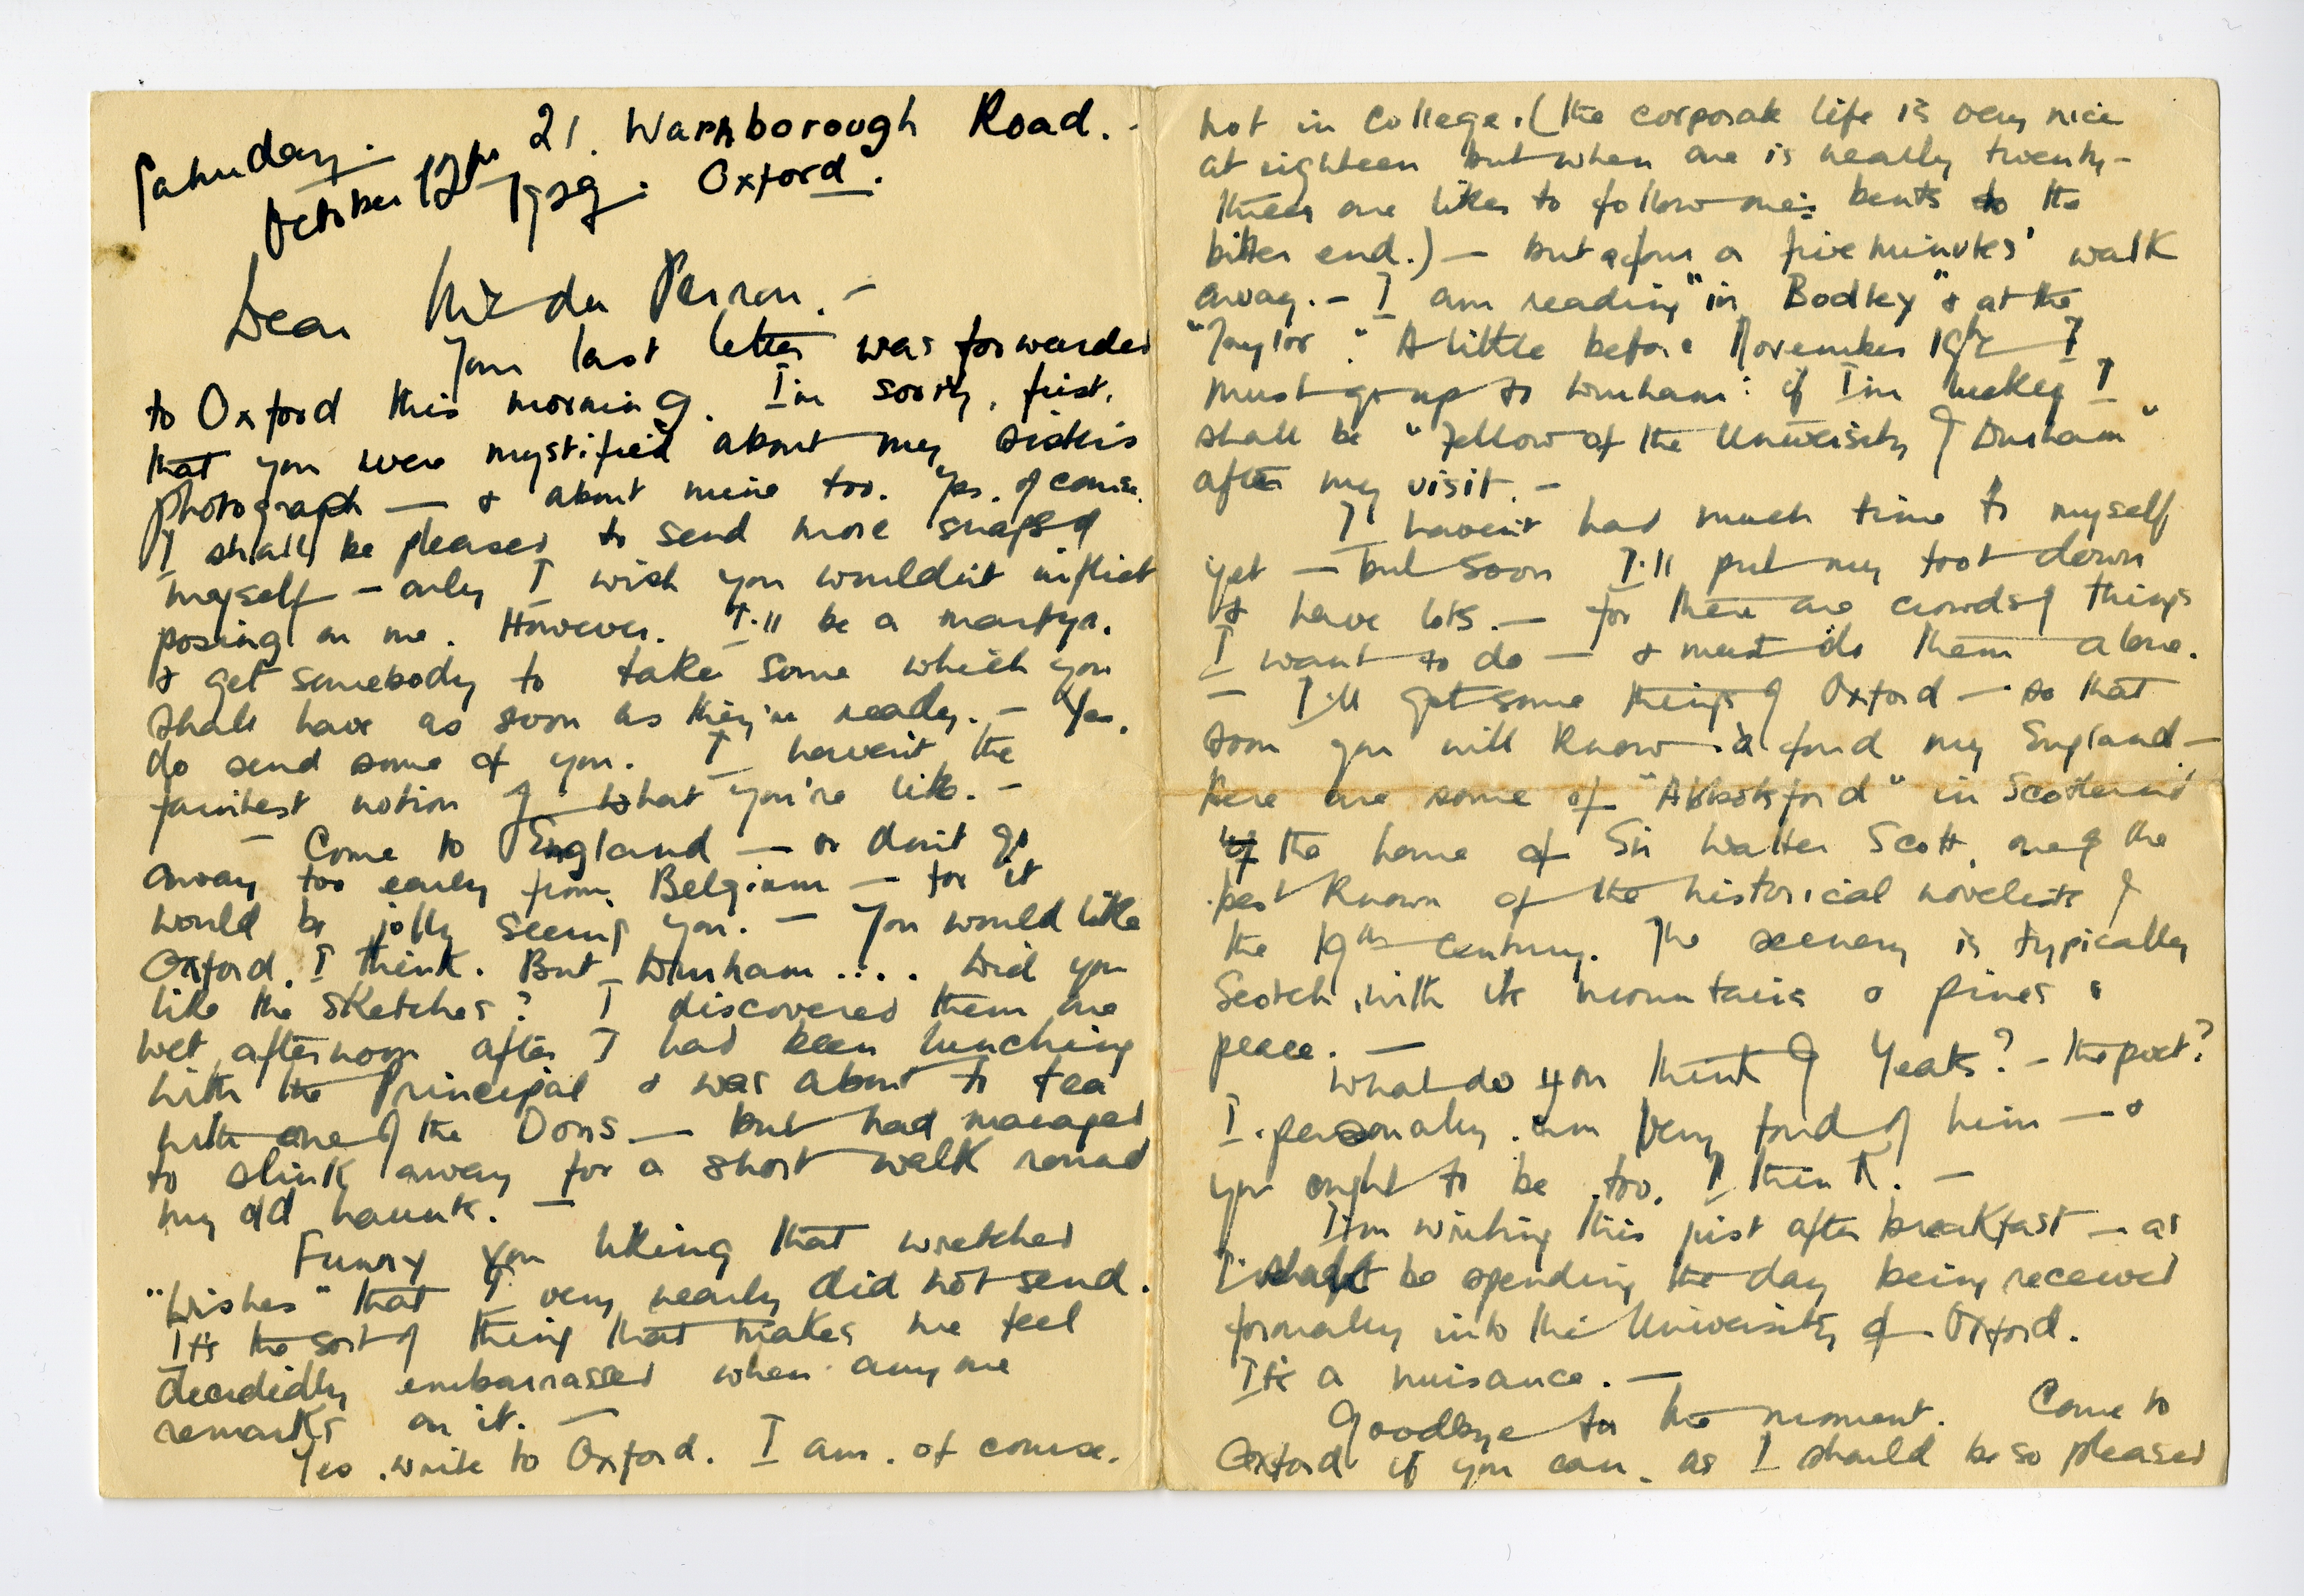 Saturday.
21. Warnborough Road.
October 12th 1929. Oxford.
Dear Mr. du Perron. —
Your last letter was forwarded
to Oxford this morning. I'm sorry, first,
that you were mystified about my sister's
photograph — & about mine too. Yes, of course.
I shall be pleased to send more snaps of
myself — only I wish you wouldn't inflict
posing on me. However. I'll be a martyr.
& get somebody to take some which you
shall have as soon as they're ready. — Yes,
do send some of you. I haven't the
faintest notion of what you're like. —
— Come to England — or don't go
away too early from Belgium — for it
would be jolly seeing you. — You would like
Oxford, I think. But Durham .... Did you
like the sketches? I discovered them one
wet afternoon after I had been lunching
with the Principal & was about to tea
with one of the Dons — but had managed
to slink away for a short walk round
my old haunts. —
Funny you liking that wretched
"Wishes" that I very nearly did not send.
It's the sort of thing that makes me feel
decidedly embarrassed when anyone
remarks on it. —
Yes, write to Oxford. I am, of course,
not in College. (the corporate life is very nice
at eighteen but when one is nearly twenty-
three one likes to follow one's bents to the
bitter end.) — but a five minutes' walk
away. — I am reading "in Bodley" & at the
"Taylor". A little before November 19th I
must go up to Durham: if I'm lucky I
shall be "Fellow of the University of Durham"
after my visit. —
I haven't had much time to myself
yet — but soon I'll put my foot down
& have lots. — for there are crowds of things
I want to do — & must do them alone.
— I'll get some things of Oxford — so that
soon you will know a fond my England —
here are some of "Abbotsford" in Scotland
the home of Sir Walter Scott, one of the
best known of the historical novelists of
the 19th century. The scenery is typically
Scotch, with its mountains & pines &
peace. —
What do you think of Yeats? — the poet?
I personally am very fond of him — &
you ought to be too, I think. —
I'm writing this just after breakfast — as
I shall be spending the day being received
formally into the University of Oxford.
It's a nuisance. —
Goodbye for the moment. Come to
Oxford if you can, as I should be so pleased